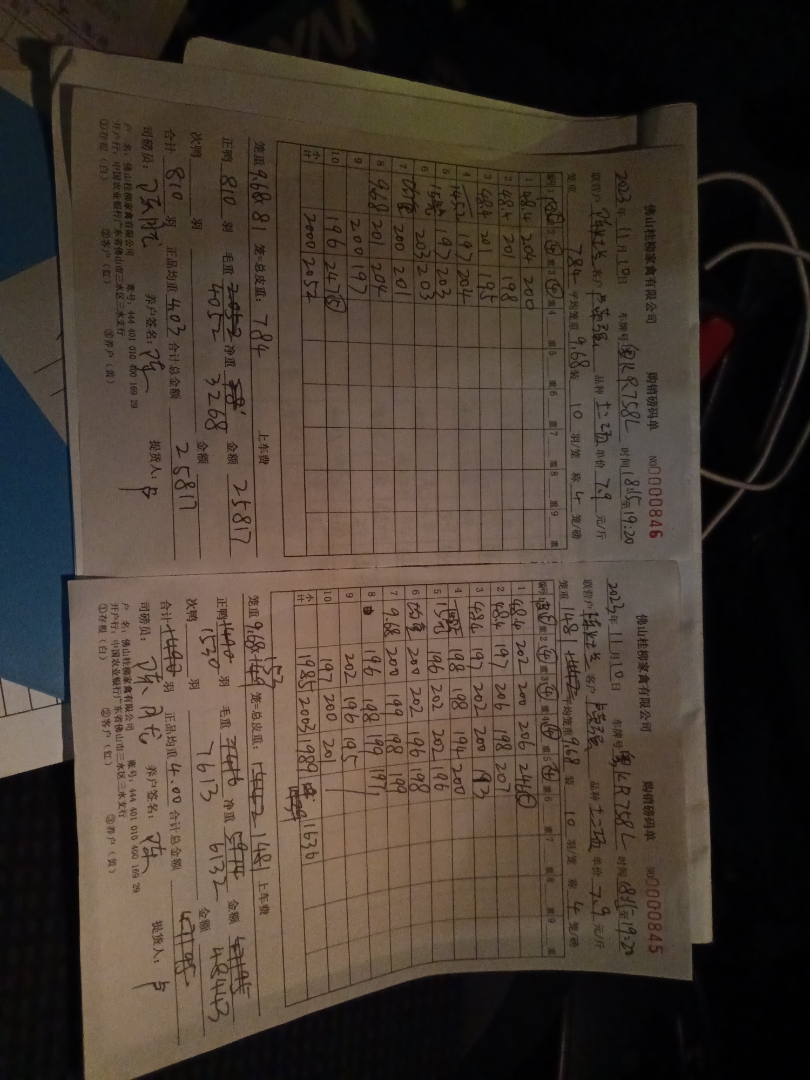 佛山桂柳家禽有限公司 购销磅码单 NO 0000846
2023年11月10日 车牌号 粤KR758L 时间 18:15至19:20
联营户 客户 品种 单价 7.9 元/斤
笼重 784 平均笼重 9.68 装 10 羽/笼 称 4 笼/磅
编号 重1 重2 重3 重4 重5 重6 重7 重8 重9 重
1 48.4 204 200
2 48.4 201 198
3 48.4 201 195
4 197 204
5 197 203
6 203 203
7 200 201
8 9.68 201 204
9 200 197
10 196 247⑤
小计 2000 2052
笼重 9.68 81 笼=总皮重: 784 上车费
正鸭 810 羽 毛重 4052 净重 3268 金额 25817
次鸭 羽 金额
合计 810 羽 正品均重 4.03 合计总金额 25817
司磅员: 养户签名: 陈 提货人: 卢
户 名: 佛山桂柳家禽有限公司 账号: 444 401 010 400 169 29
开户行: 中国农业银行广东省佛山市三水区三水支行
①存根(白) ②客户(红) ③养户(黄)
佛山桂柳家禽有限公司 购销磅码单 NO 0000845
2023年11月10日 车牌号 粤KR758L 时间 18:15至19:20
联营户 客户 品种 单价 7.9 元/斤
笼重 1481 平均笼重 9.68 装 10 羽/笼 称 4 笼/磅
编号 重2 重3 重4 重5 重6 重7 重8 重9 重
1 48.4 202 200 206 246⑤
2 48.4 197 206 198 207
3 48.4 197 202 200 193
4 198 198 194 200
5 196 202 202 196
6 200 202 196 198
7 9.68 200 199 198 199
8 196 198 199 191
9 202 196 195
10 197 200 201
小计 1985 2003 1989 1636
笼重 9.68 153 笼=总皮重: 1481 上车费
正鸭 1530 羽 毛重 7613 净重 6132 金额 48443
次鸭 羽 金额
合计 羽 正品均重 4.00 合计总金额
司磅员: 养户签名: 陈 提货人: 卢
户 名: 佛山桂柳家禽有限公司 账号: 444 401 010 400 169 29
开户行: 中国农业银行广东省佛山市三水区三水支行
①存根(白) ②客户(红) ③养户(黄)